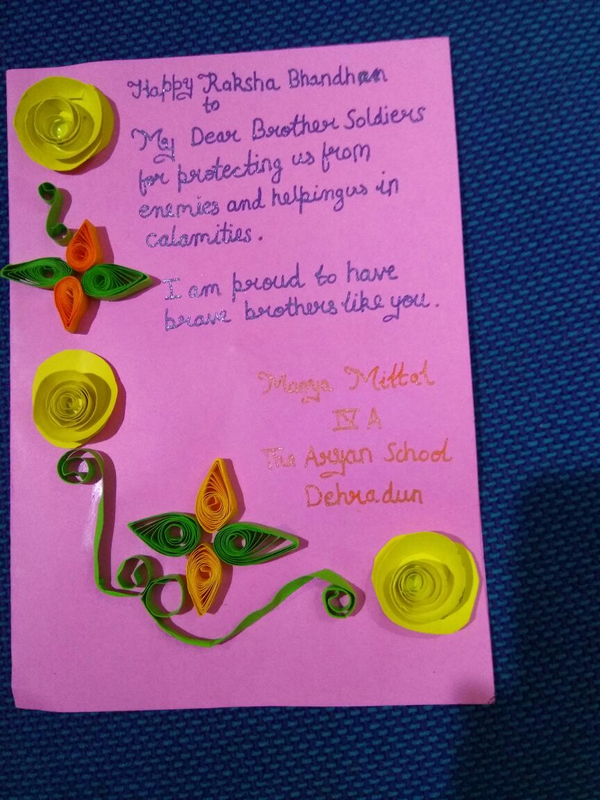 Happy Raksha Bhandhan
to
My Dear Brother Soldiers
for protecting us from
enemies and helping us in
calamities.
I am proud to have
brave brothers like you.
Mittal
IV A
The Aryan School
Dehradun